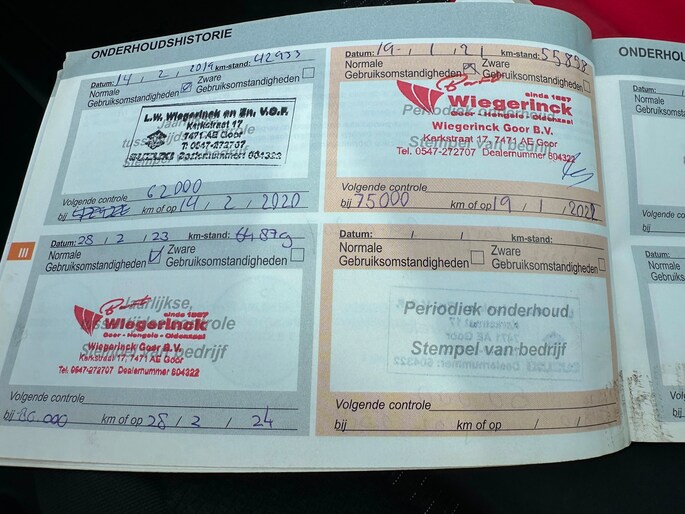 ONDERHOUDSHISTORIE
Datum: 14 / 2 / 2019 km-stand: 42933
Normale Zware
Gebruiksomstandigheden Gebruiksomstandigheden
L.W. Wiegerinck en Zn. V.O.F.
Kerkstraat 17
7471 AE Goor
T: 0547-272707
SUZUKI Dealernummer 604322
62000
Volgende controle
bij km of op 14 / 2 / 2020
Datum: 19 / 1 / 21 km-stand: 55898
Normale Zware
Gebruiksomstandigheden Gebruiksomstandigheden
Periodiek onderhoud
sinds 1897
Wiegerinck
Goor - Hengelo - Oldenzaal
Wiegerinck Goor B.V.
Kerkstraat 17, 7471 AE Goor
Stempel van bedrijf
Tel. 0547-272707 Dealernummer 604322
Volgende controle
bij 75000 km of op 19 / 1 / 2022
III
Datum: 28 / 2 / 23 km-stand:
Normale Zware
Gebruiksomstandigheden Gebruiksomstandigheden
Jaarlijkse,
sinds 1897
tussentijdse controle
Wiegerinck
Goor - Hengelo - Oldenzaal
Wiegerinck Goor B.V.
Stempel van bedrijf
Kerkstraat 17, 7471 AE Goor
Tel. 0547-272707 Dealernummer 604322
Volgende controle
bij 80.000 km of op 28 / 2 / 24
Datum: / / km-stand:
Normale Zware
Gebruiksomstandigheden Gebruiksomstandigheden
Periodiek onderhoud
Stempel van bedrijf
Volgende controle
bij km of op / /
ONDERHOU
Datum:
Normale
Gebruiksom
Volgende co
bij
Datum:
Normal
Gebruik
Volge
bij